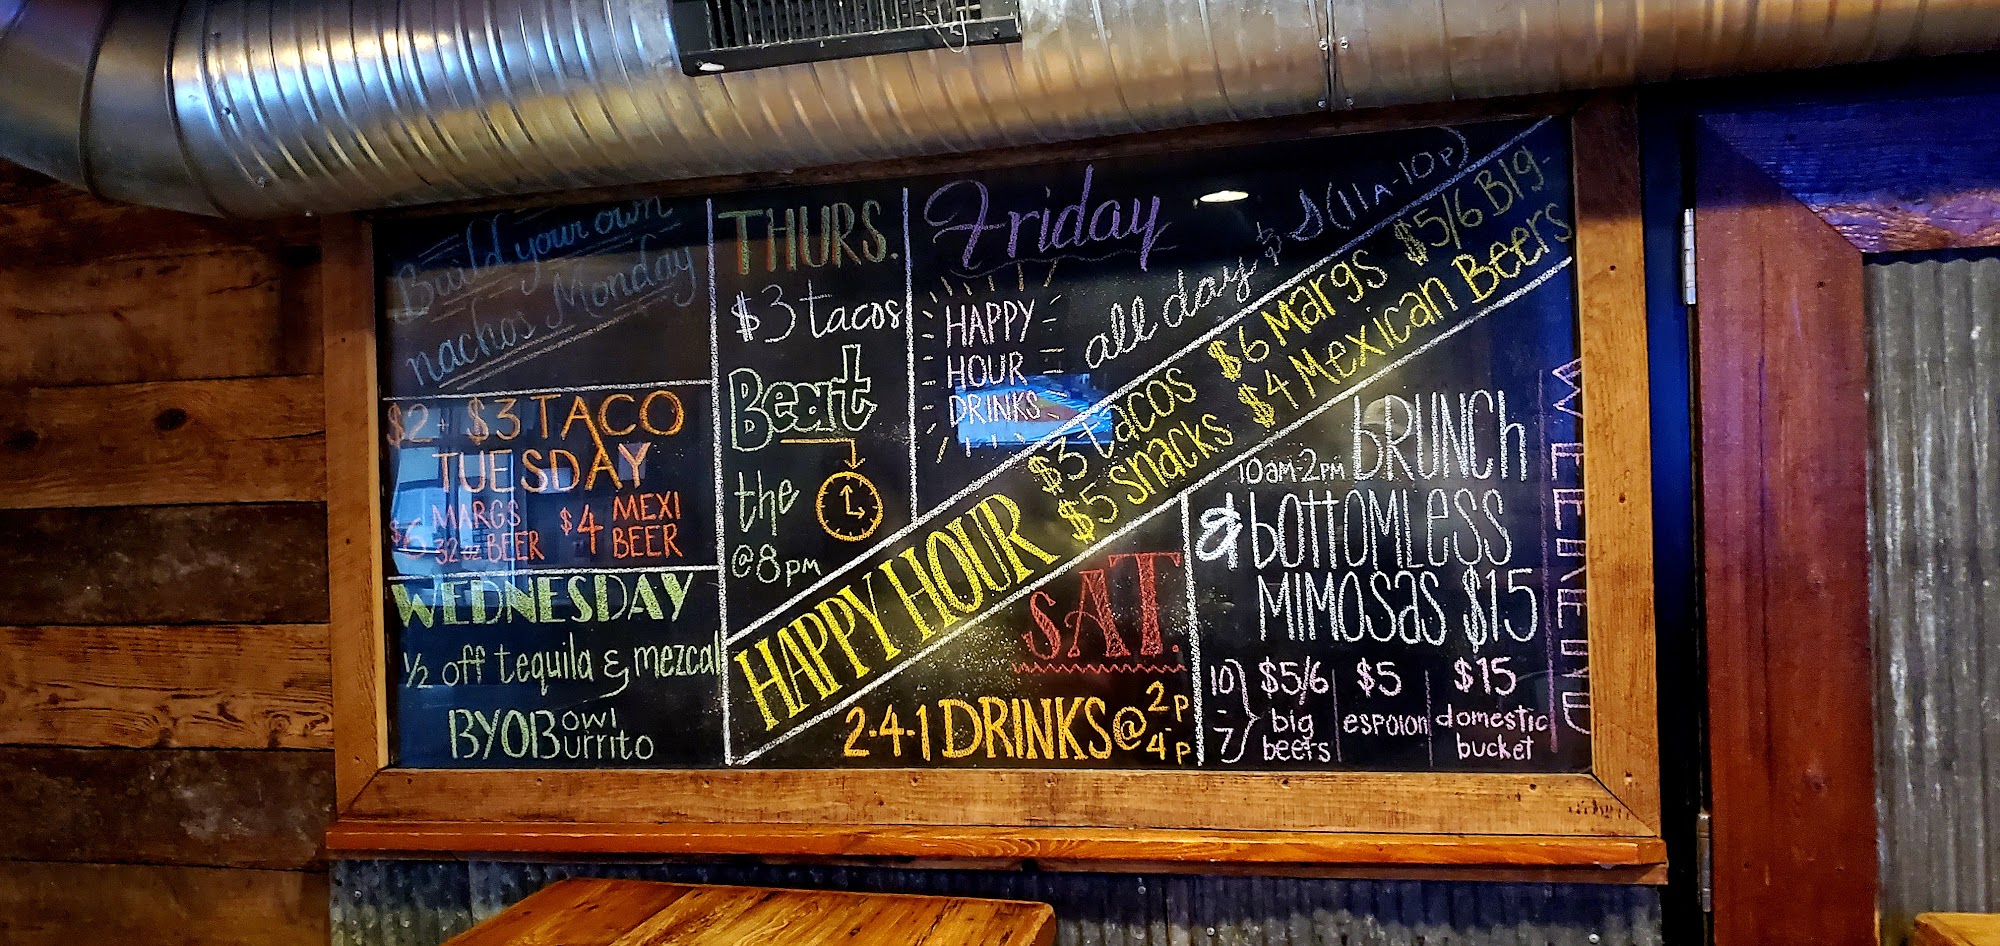 Build your own
nachos Monday
$2 + $3 TACO
TUESDAY
$6 MARGS
32oz BEER
$4 MEXI
BEER
WEDNESDAY
½ off tequila & mezcal
BYOBowl
Burrito
THURS.
$3 tacos
Beat
the
@8pm
Friday
HAPPY
HOUR
DRINKS
all day
(11A-10P)
HAPPY HOUR
$3 tacos $6 Margs $5/6 BIG
$5 snacks $4 Mexican Beers
SAT.
2-4-1 DRINKS @ 2p
4p
WEEKEND
10am-2pm bRUNCh
& bottomless
MIMOSAS $15
10
-
7
$5/6
big
beers
$5
espolon
$15
domestic
bucket